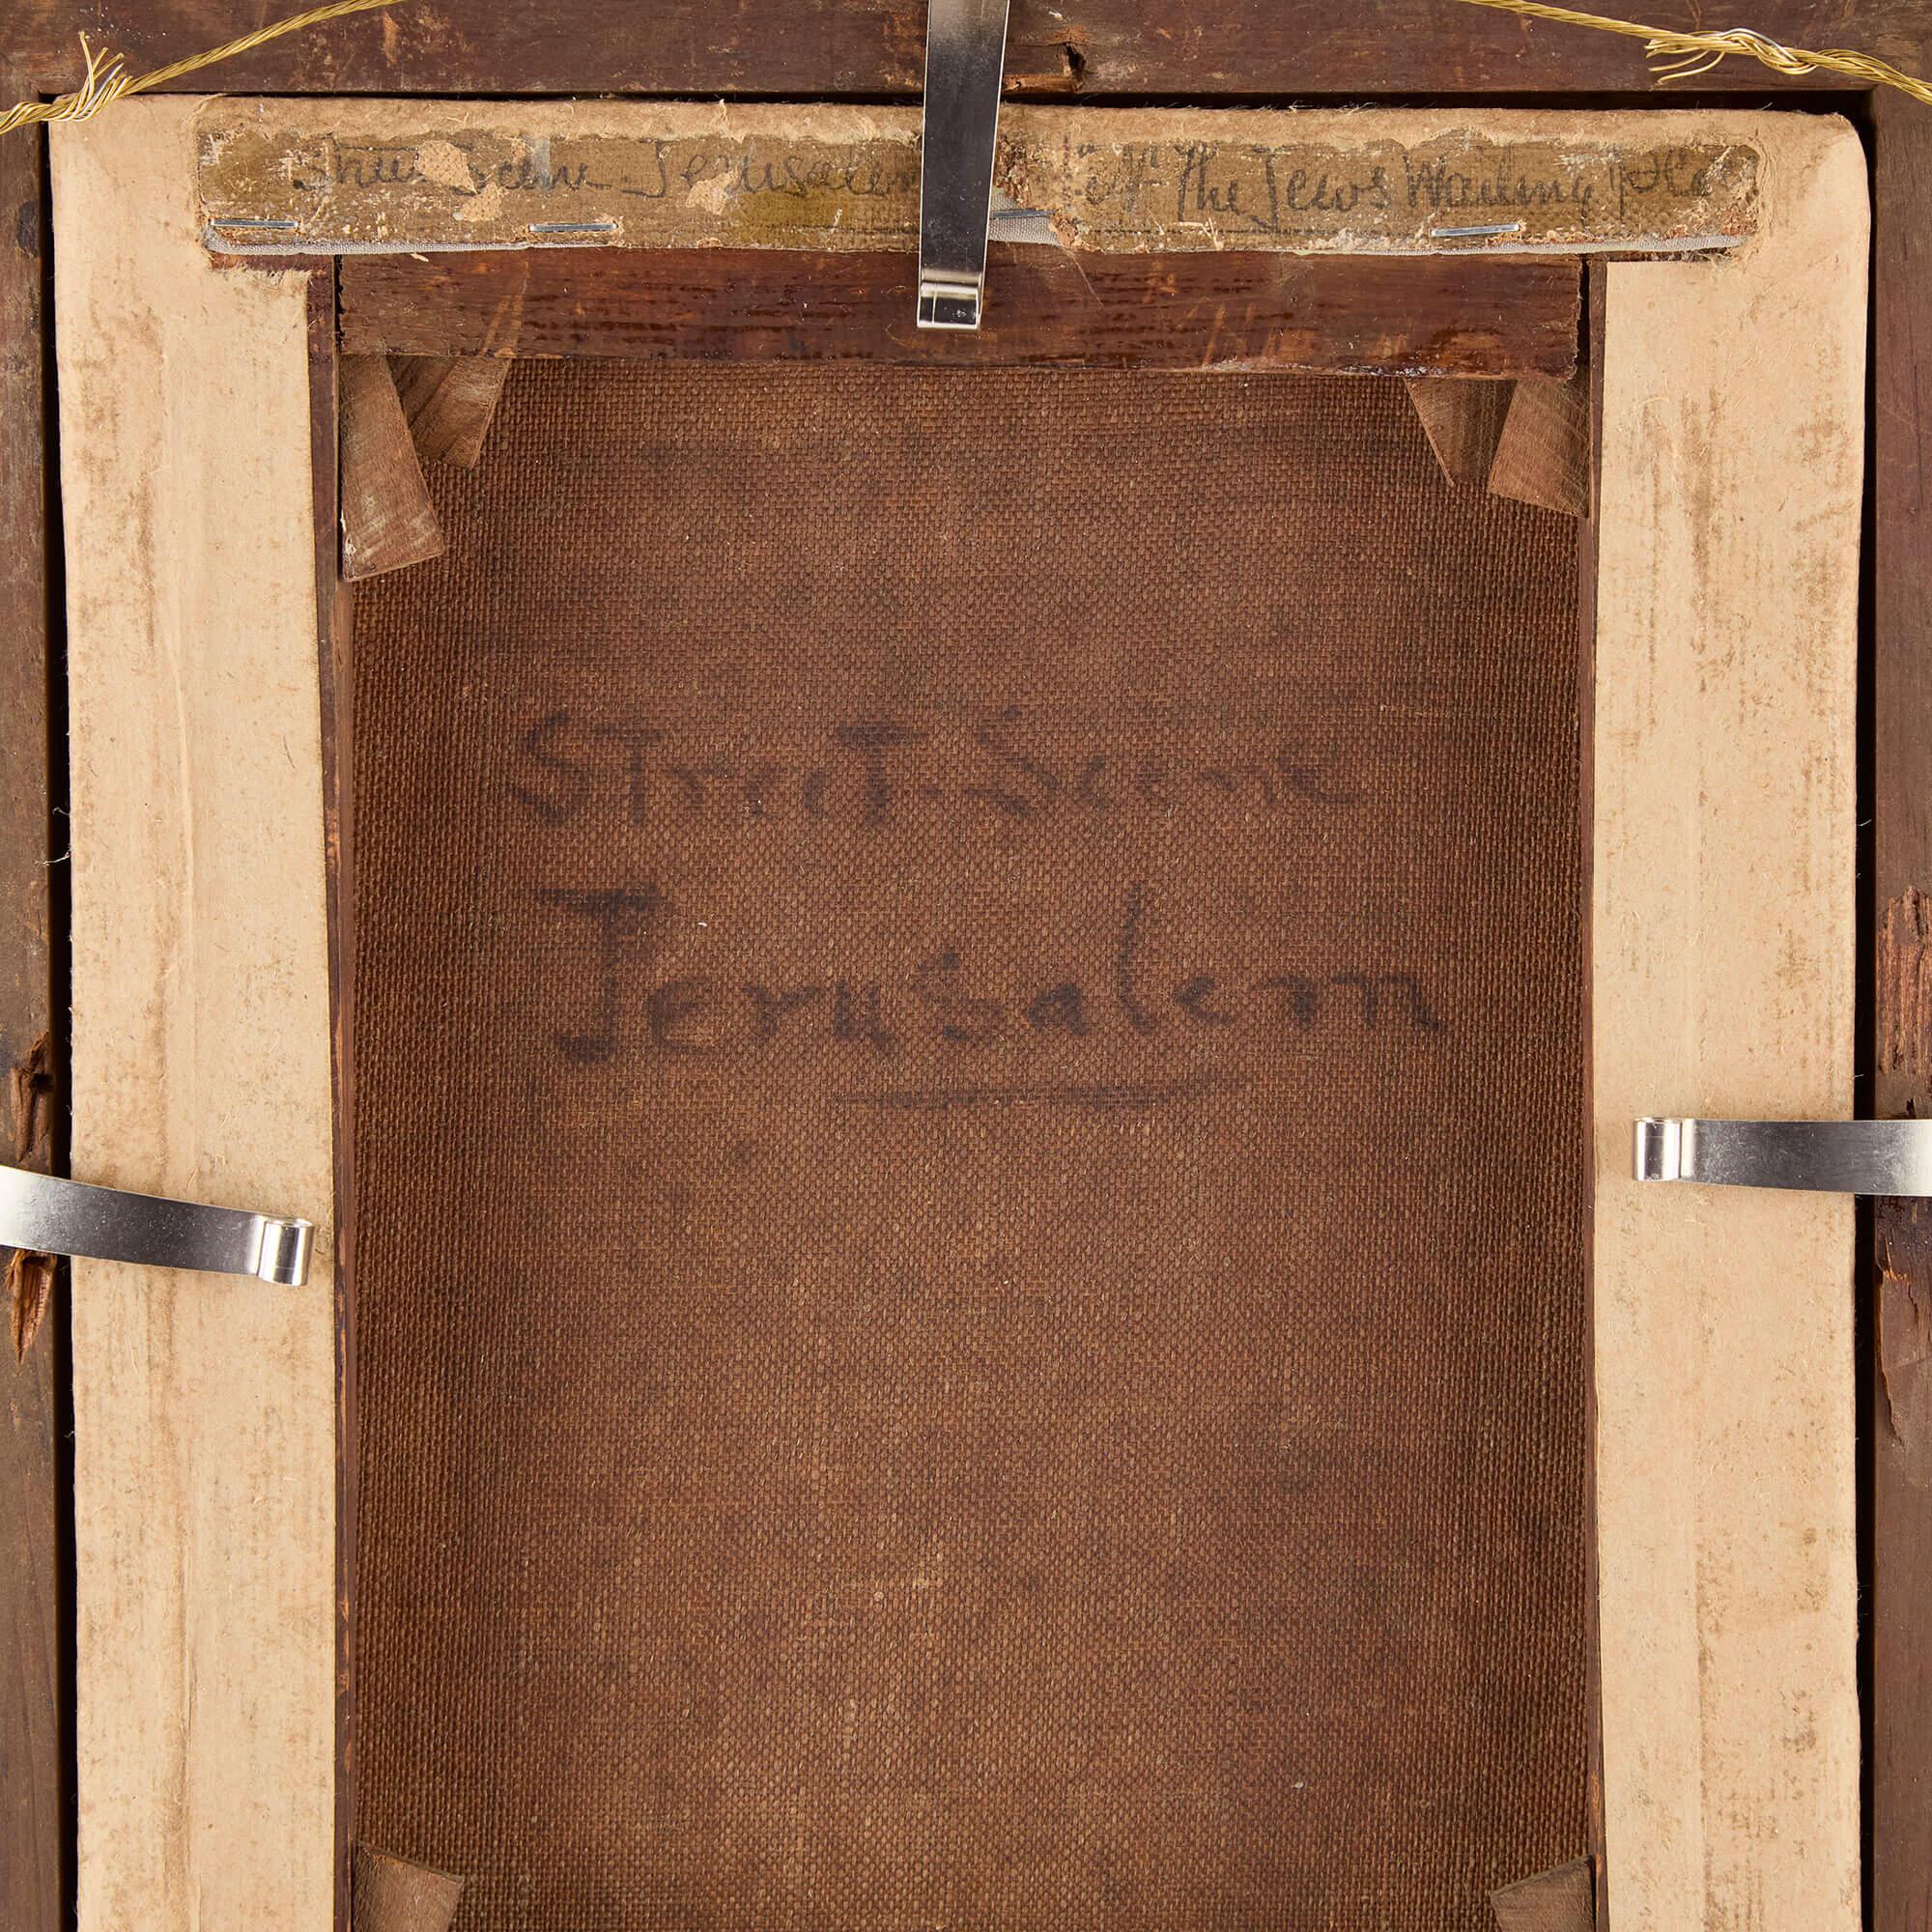 Street Scene Jerusalem of The Jews Wailing place
Street Scene
Jerusalem